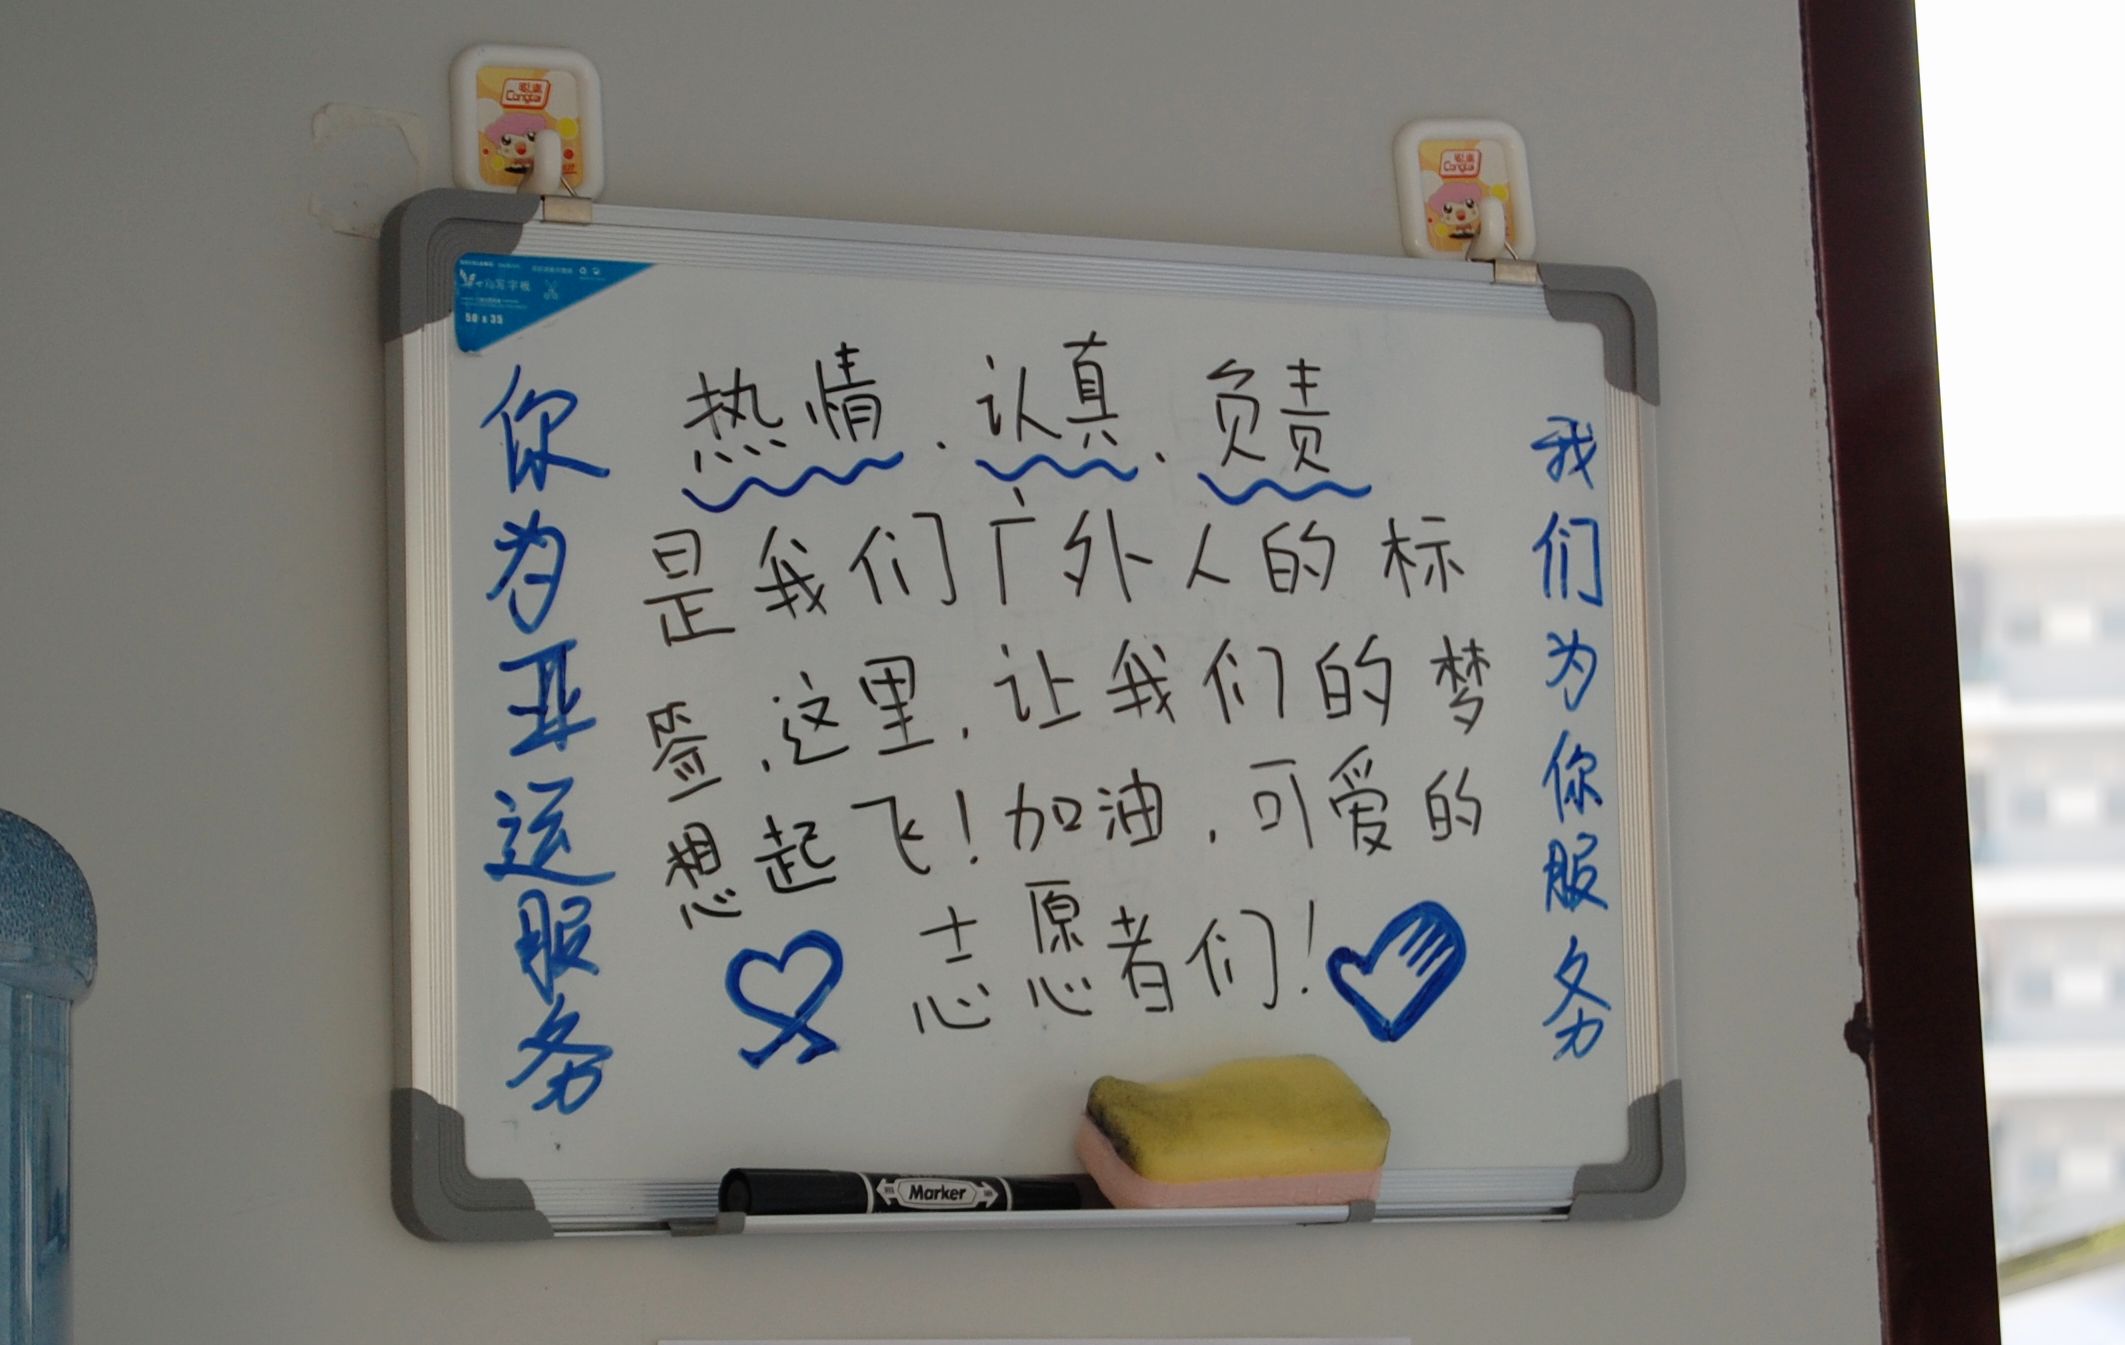 你为亚运服务
热情、认真、负责
是我们广外人的标
签,这里,让我们的梦
想起飞!加油,可爱的
志愿者们!
我们为你服务
写字板
50 x 35
Marker